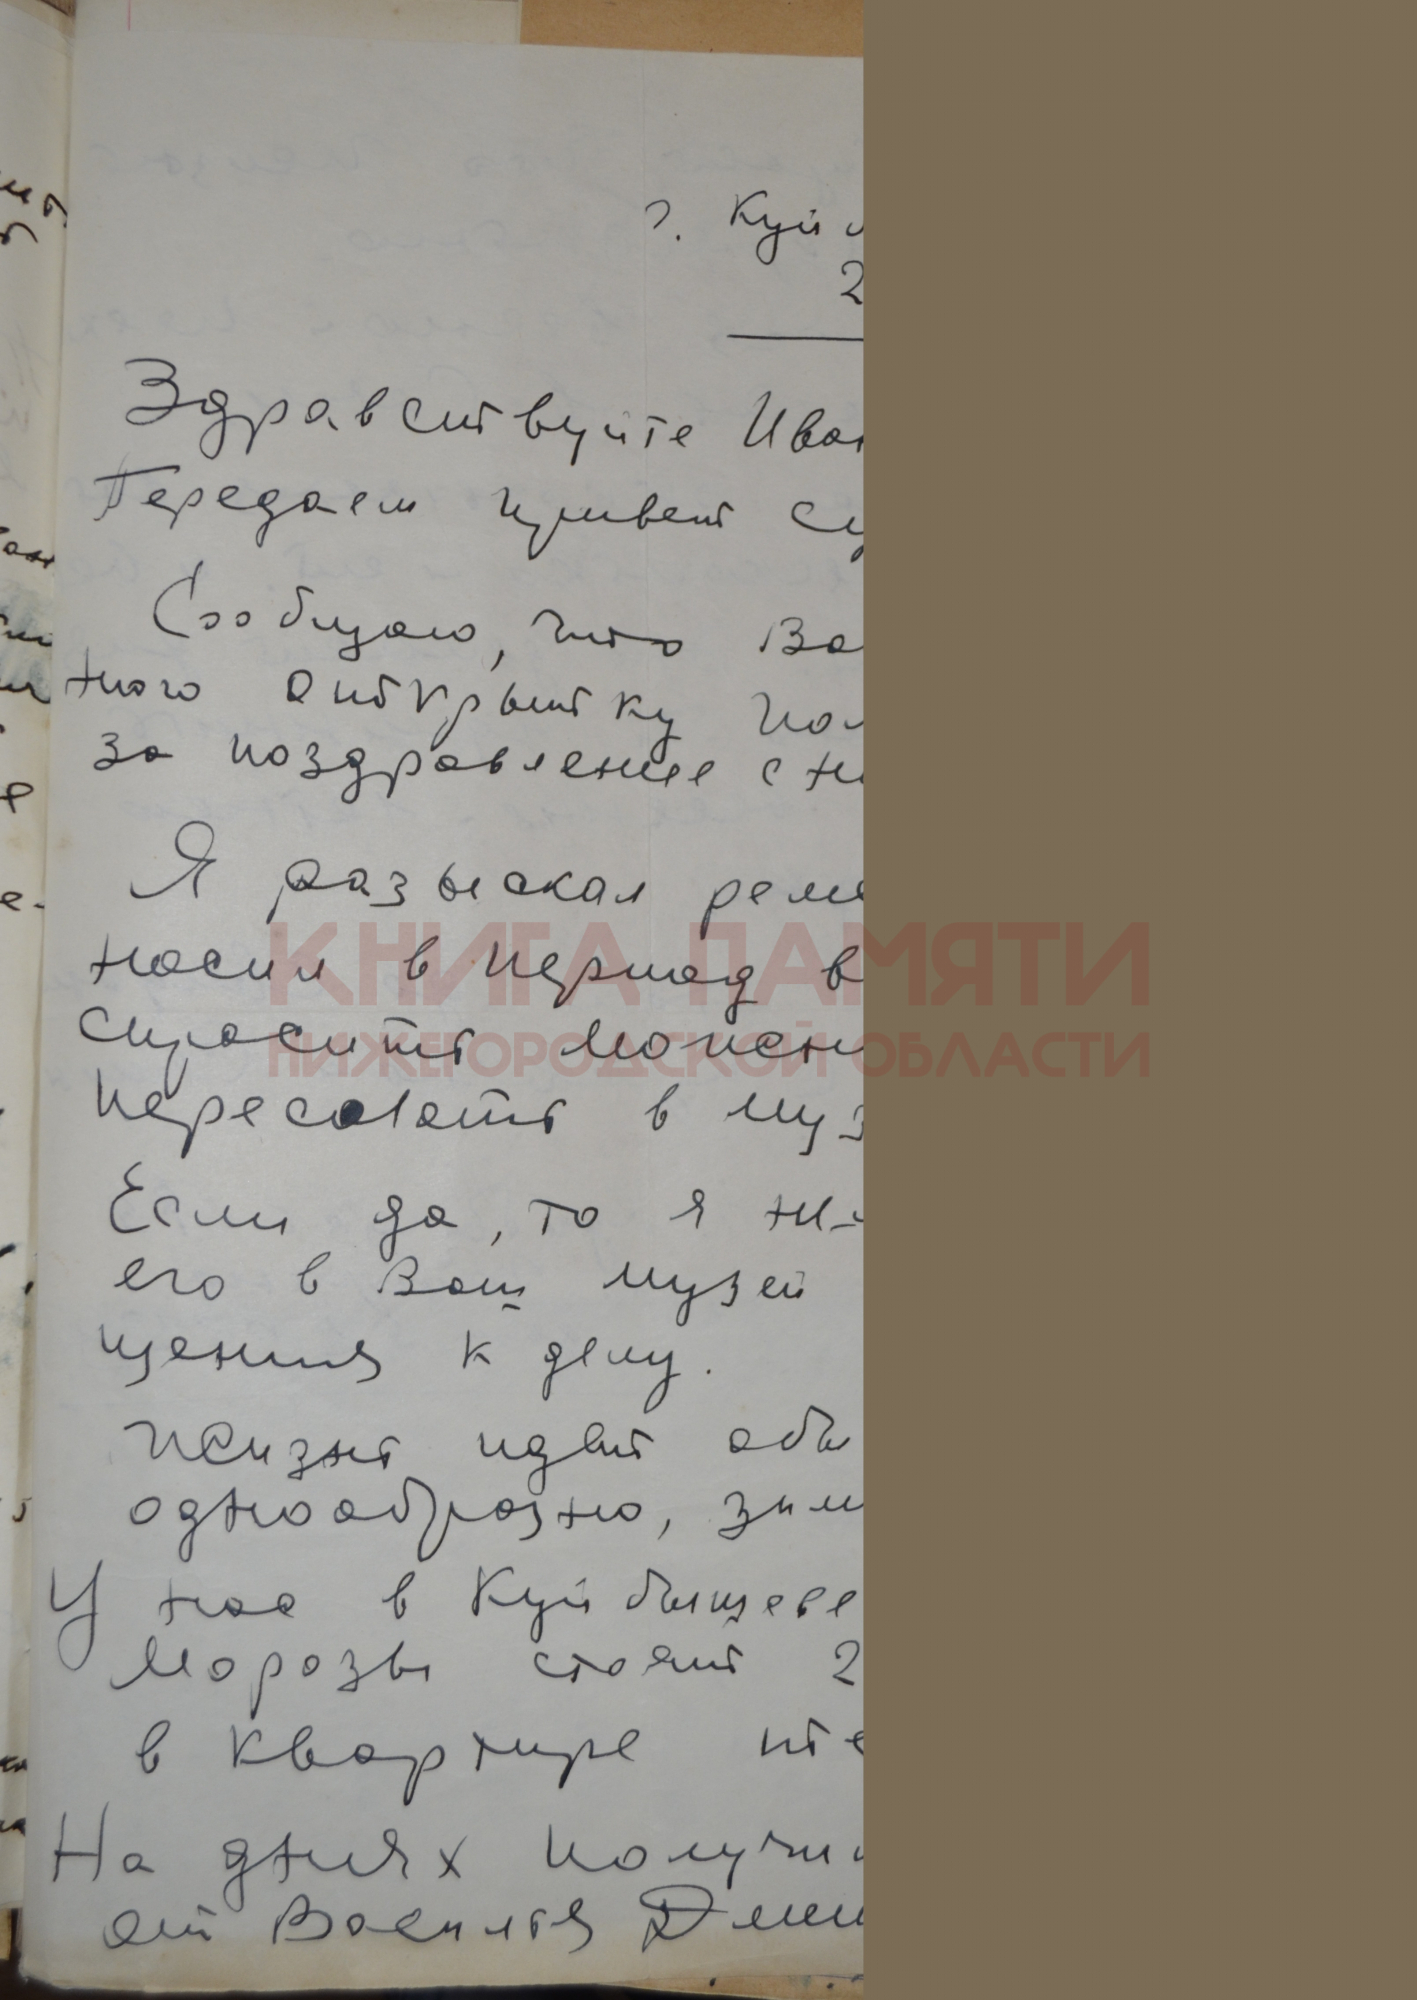 г. Куй
2
Здравствуйте Иван
Передаем привет
Сообщаю, что Ва
ного открытку пол
за поздравление с н
Я разыскал реме
носил в период в
спросить можн
переслать в муз
Если да, то я
его в Ваш музей
щения к делу.
Жизнь идет обы
однообразно, зим
У нас в Куйбышеве
морозы стоят 2
в квартире те
На днях получи
от Василья Дми
КНИГА ПАМЯТИ
НИЖЕГОРОДСКОЙ ОБЛАСТИ